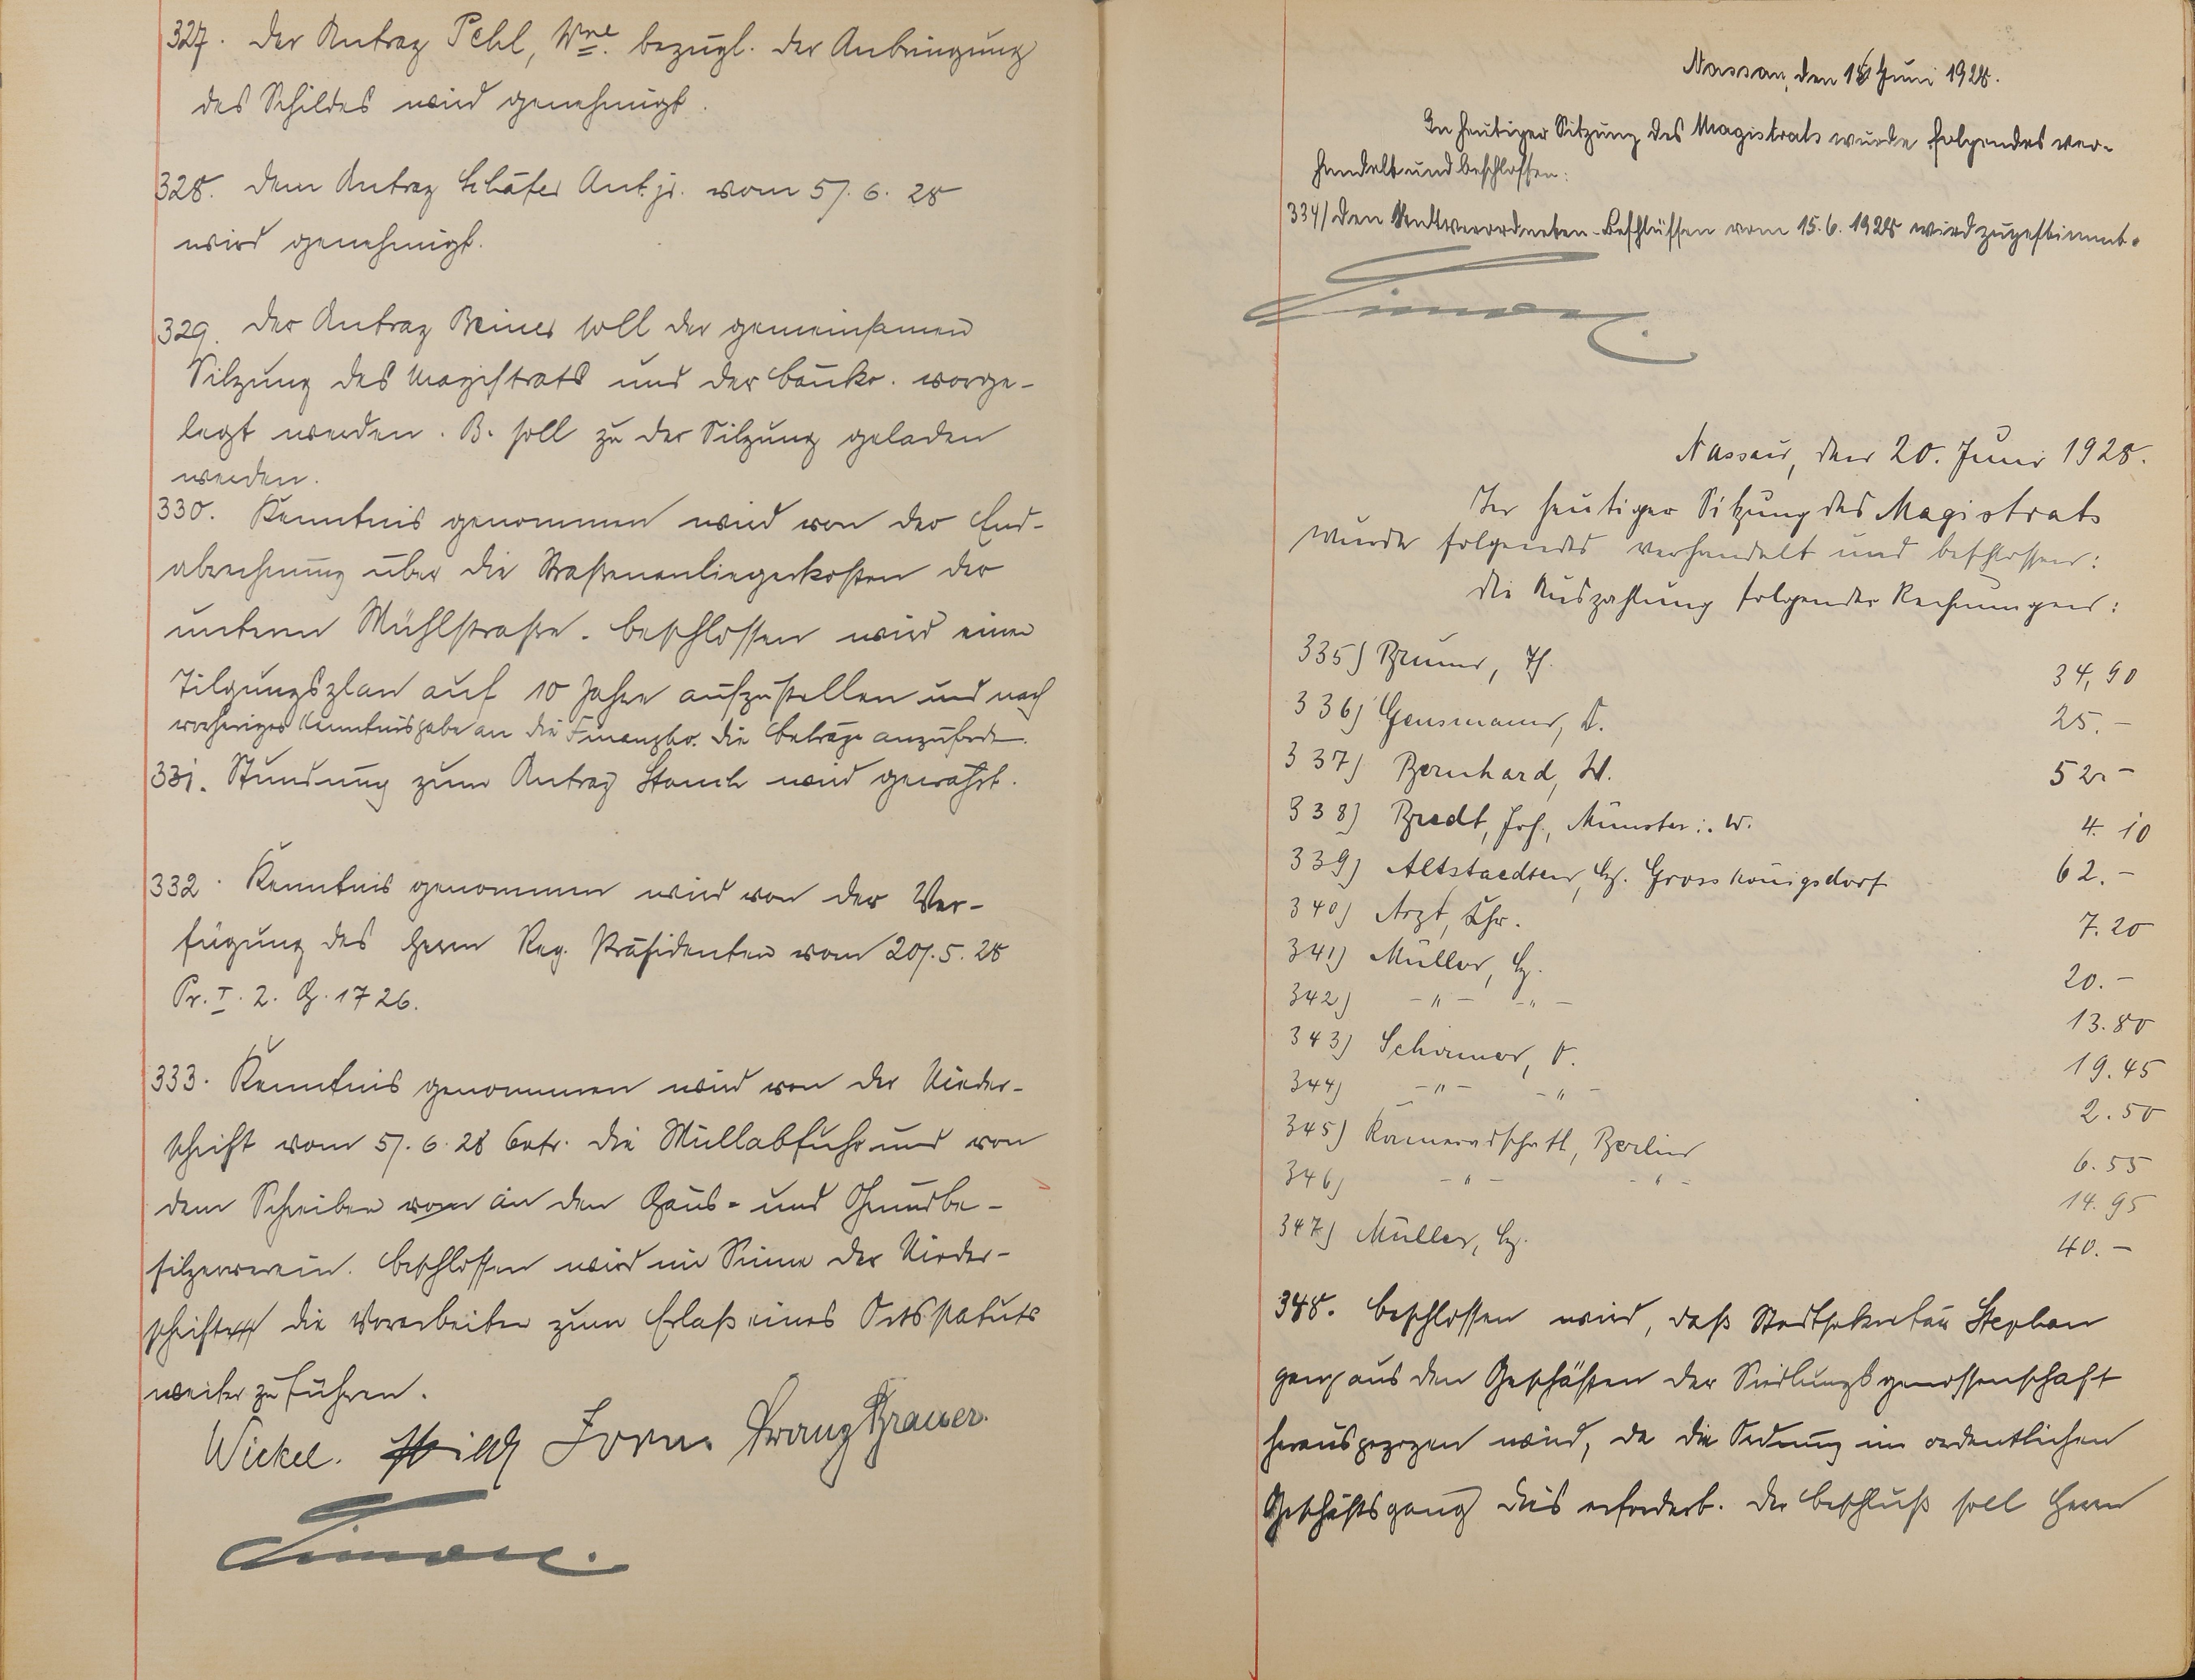 327. Der Antrag Pehl, Wwe. bezügl. der Anbringung
des Schildes wird genehmigt.
328. Dem Antrag Schäfer Ant. jr. vom 5/. 6. 28
wird genehmigt.
329. Der Antrag Beines soll der gemeinsamen
Sitzung des Magistrats und der Bauko. vorge-
legt werden. B. soll zu der Sitzung geladen
werden.
330. Kenntnis genommen wird von der End-
abrechnung über die Straßenanliegerkosten der
unteren Mühlstraße. Beschlossen wird einen
Tilgungsplan auf 10 Jahre aufzustellen und nach
vorheriger Kenntnisgabe an die Finanzko. die Beträge anzuford.
331. Stundung zum Antrag Stauch wird gewährt.
332. Kenntnis genommen wird von der Ver-
fügung des Herrn Reg. Präsidenten vom 20/. 5. 28
Pr. I. 2. G. 1726.
333. Kenntnis genommen wird von der Nieder-
schrift vom 5/. 6. 28 betr. die Müllabfuhr und von
dem Schreiben vom an den Haus- und Grundbe-
sitzerverein. Beschlossen wird im Sinne der Nieder-
schrift die Vorarbeiten zum Erlaß eines Ortsstatuts
weiter zu führen.
Wickel. Zorn. Franz Brauer.
Nassau, den 18 Juni 1928.
In heutiger Sitzung des Magistrats wurde folgendes ver-
handelt und beschlossen:
334/ Den Stadtverordneten-Beschlüssen vom 15.6.1928 wird zugestimmt.
Nassau, den 20. Juni 1928.
In heutiger Sitzung des Magistrats
wurde folgendes verhandelt und beschlossen:
Die Auszahlung folgender Rechnungen:
335) Bruns, Th. 34,90
336) Gensmann, A. 25.-
337) Bernhard, W. 52.-
338) Bredt, Joh., Münster i. W. 4.10
339) Altstaedten, Hch. Grosskönigsdorf 62.-
340) Arzt, Chr. 7.20
341) Müller, Hch. 20.-
342) -"- -"- 13.80
343) Schirmer, A. 19.45
344) -"- -"- 2.50
345) Kameradschaft, Berlin 6.55
346) -"- -"- 14.95
347) Müller, Hch. 40.-
348. Beschlossen wird, daß Stadtsekretär Stephan
ganz aus den Geschäften der Siedlungsgenossenschaft
herausgezogen wird, da die Ordnung im ordentlichen
Geschäftsgang dies erfordert. Der Beschluß soll Herrn